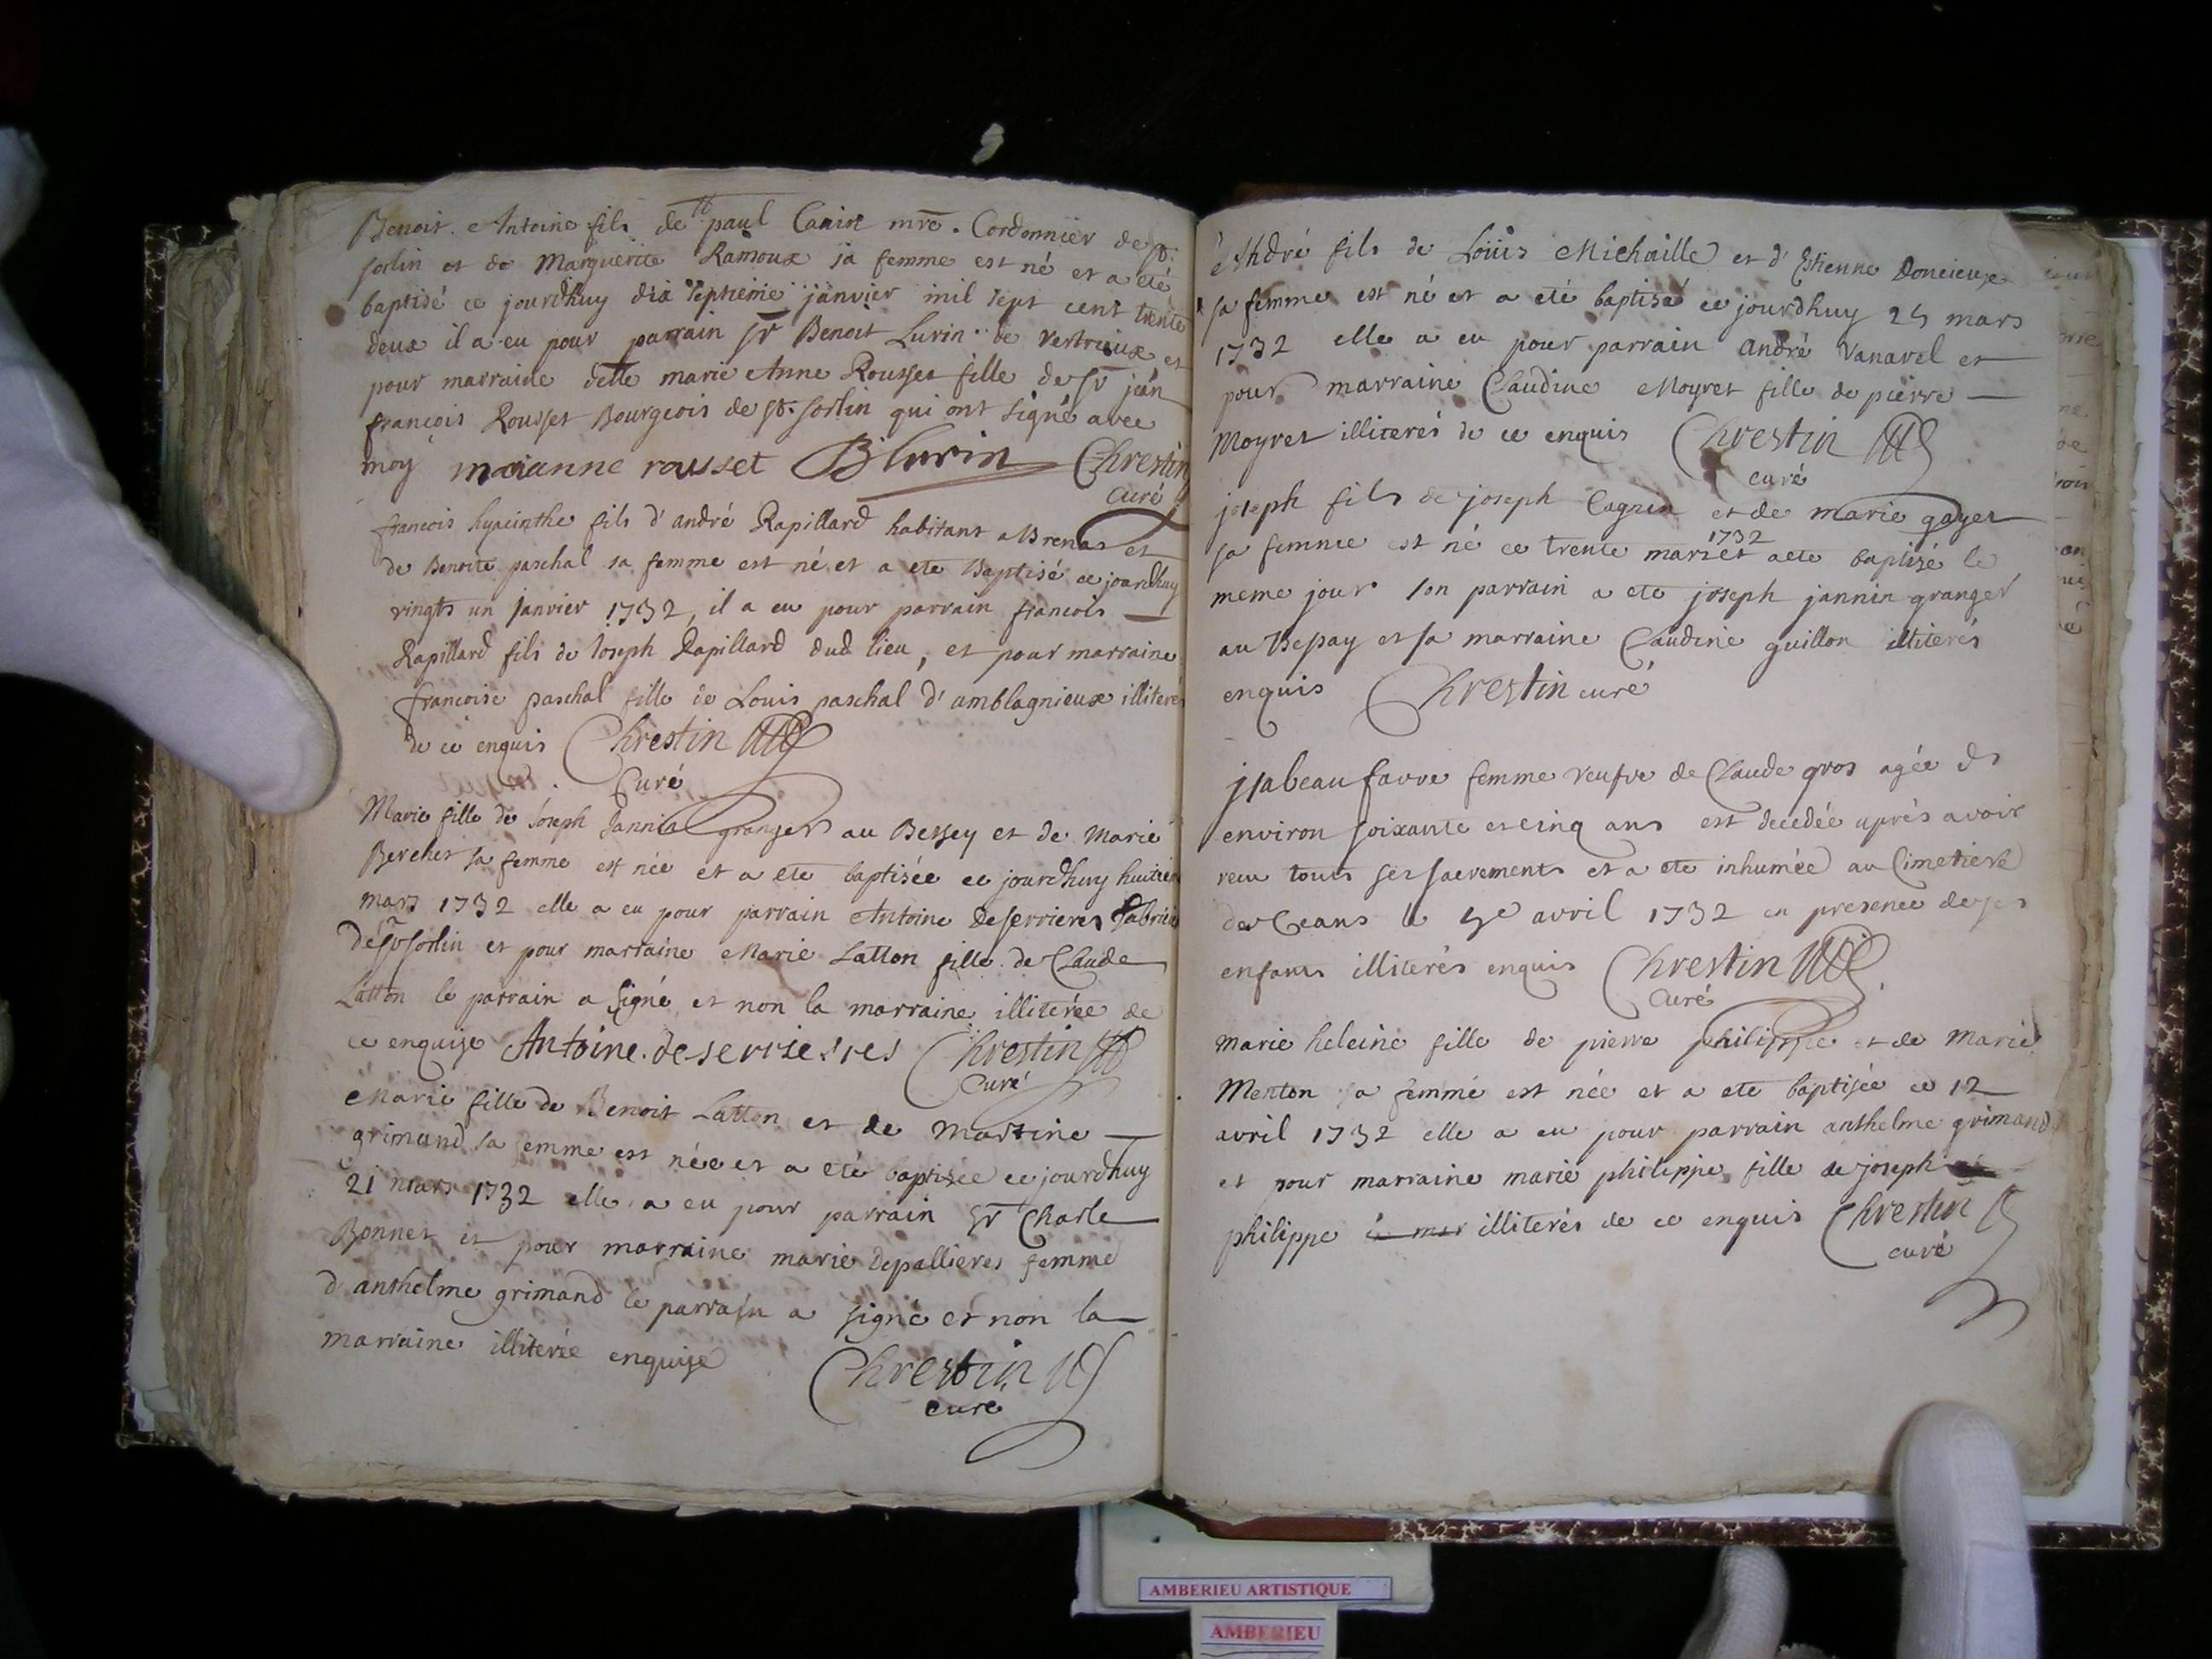 Benoit Antoine fils de Sr paul Canin mre. Cordonnier de St.
sorlin et de Marguerite Ramoux sa femme est né et a été
baptisé ce jourdhuy dix septieme janvier mil sept cent trente
deux il a eu pour parrain Sr Benoit Lurin de vertrieux et
pour marraine delle marie Anne Rousset fille de Sr jean
françois Rousset Bourgeois de St. sorlin qui ont signé avec
moy marianne rousset B lurin Chrestin
Curé
francois hyacinthe fils d'andré Rapillard habitant a Brenas et
de Benoite paschal sa femme est né et a ete Baptisé ce jourdhuy
vingts un janvier 1732, il a eu pour parrain francois
Rapillard fils de Joseph Rapillard dud lieu, et pour marraine
francoise paschal fille de Louis paschal d'amblagnieux illiterés
de ce enquis Chrestin
Curé
Marie fille de Joseph Jannin granger au Bessey et de Marie
Berchet sa femme est née et a ete baptisée ce jourdhuy huitie
mars 1732 elle a eu pour parrain Antoine Deserrieres
de St Sorlin et pour marraine Marie Latton fille de Claude
Latton le parrain a signé et non la marraine illiterée de
ce enquise Antoine deserrieres Chrestin
Curé
Marie fille de Benoit Latton et de Martine
grimand sa femme est née et a eté baptisée ce jourdhuy
21 mars 1732 elle a eu pour parrain Sr Charle
Bonnet et pour marraine marie depallieres femme
d'anthelme grimand le parrain a signé et non la
marraine illiterée enquise Chrestin
curé
André fils de Loüis Michaille et d'Estienne Doncieux
sa femme est né et a eté baptisé ce jourdhuy 25 mars
1732 elle a eu pour parrain andré Vanavel et
pour marraine Claudine Moyret fille de pierre
Moyret illiterés de ce enquis Chrestin
curé
joseph fils de joseph Cagnin et de marie gayet
sa femme est né ce trente mars 1732 et a ete baptizé le
meme jour son parrain a ete joseph jannin granger
au Bessay et sa marraine Claudine guillon illiterés
enquis Chrestin curé
jsabeau favre femme veufve de Claude gros agée de
environ soixante et cinq ans est decedée aprés avoir
recu touts ses sacrements et a ete inhumée au Cimetiere
de Ceans le 5e avril 1732 en presence de ses
enfants illiterés enquis Chrestin
Curé
marie heleine fille de pierre philippe et de Marie
Menton sa femme est née et a ete baptisée ce 12
avril 1732 elle a eu pour parrain anthelme grimand
et pour marraine marie philippe fille de joseph
philippe illiterés de ce enquis Chrestin
curé
AMBERIEU ARTISTIQUE
AMBERIEU